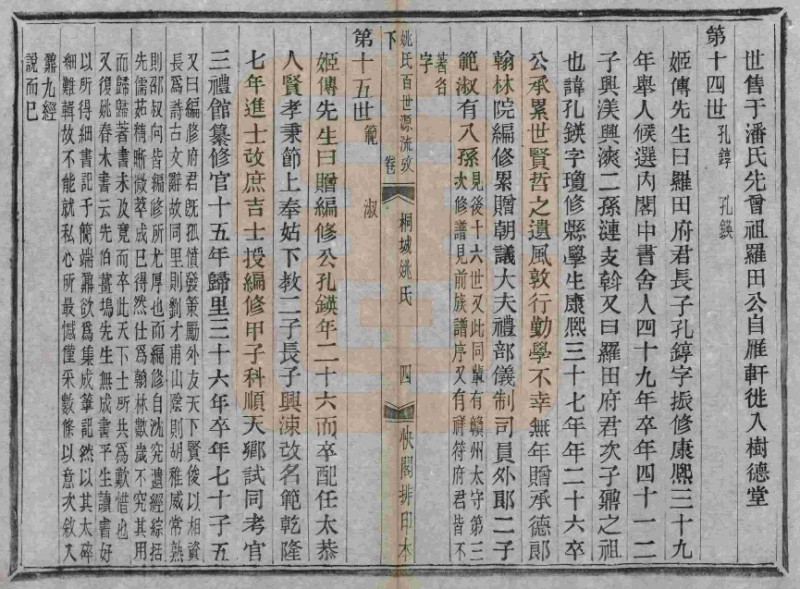 世售于潘氏先曾祖羅田公自雁軒徙入樹德堂
第十四世 孔錞 孔鍈
姬傳先生曰羅田府君長子孔錞字振修康熙三十九
年舉人候選內閣中書舍人四十九年卒年四十一二
子興渼興㴋二孫漣支斡又曰羅田府君次子鼐之祖
也諱孔鍈字瓊修縣學生康熙三十七年年二十六卒
公承累世賢哲之遺風敦行勤學不幸無年贈承德郎
翰林院編修累贈朝議大夫禮部儀制司員外郎二子
範淑有八孫見後十六世又此同輩有贛州太守第三
次修譜見前族譜序又有祥符府君皆不
著名
字
姚氏百世源流攷 卷下 桐城姚氏 四 快閣排印本
第十五世 範 淑
姬傳先生曰贈編修公孔鍈年二十六而卒配任太恭
人賢孝秉節上奉姑下教二子長子興涑改名範乾隆
七年進士改庶吉士授編修甲子科順天鄉試同考官
三禮館纂修官十五年歸里三十六年卒年七十子五
又曰編修府君既孤憤發策勵外友天下賢俊以相資
長爲詩古文辭故同里則劉才甫山陰則胡稚威常熟
則邵叔向皆編修所尤厚也而編修自沈究遺經綜括
先儒茹精晰微萃成已得然仕爲翰林數歲不究其用
而歸歸著書未及竟而卒此天下士所共爲歎惜也
又復姚春木書云先伯薑塢先生無成書平生讀書好
以所得細書記于簡端鼐欲爲集成筆記然以其太碎
細難輯故不能就私心所最憾僅采數條以意次敘入
鼐九經
說而已